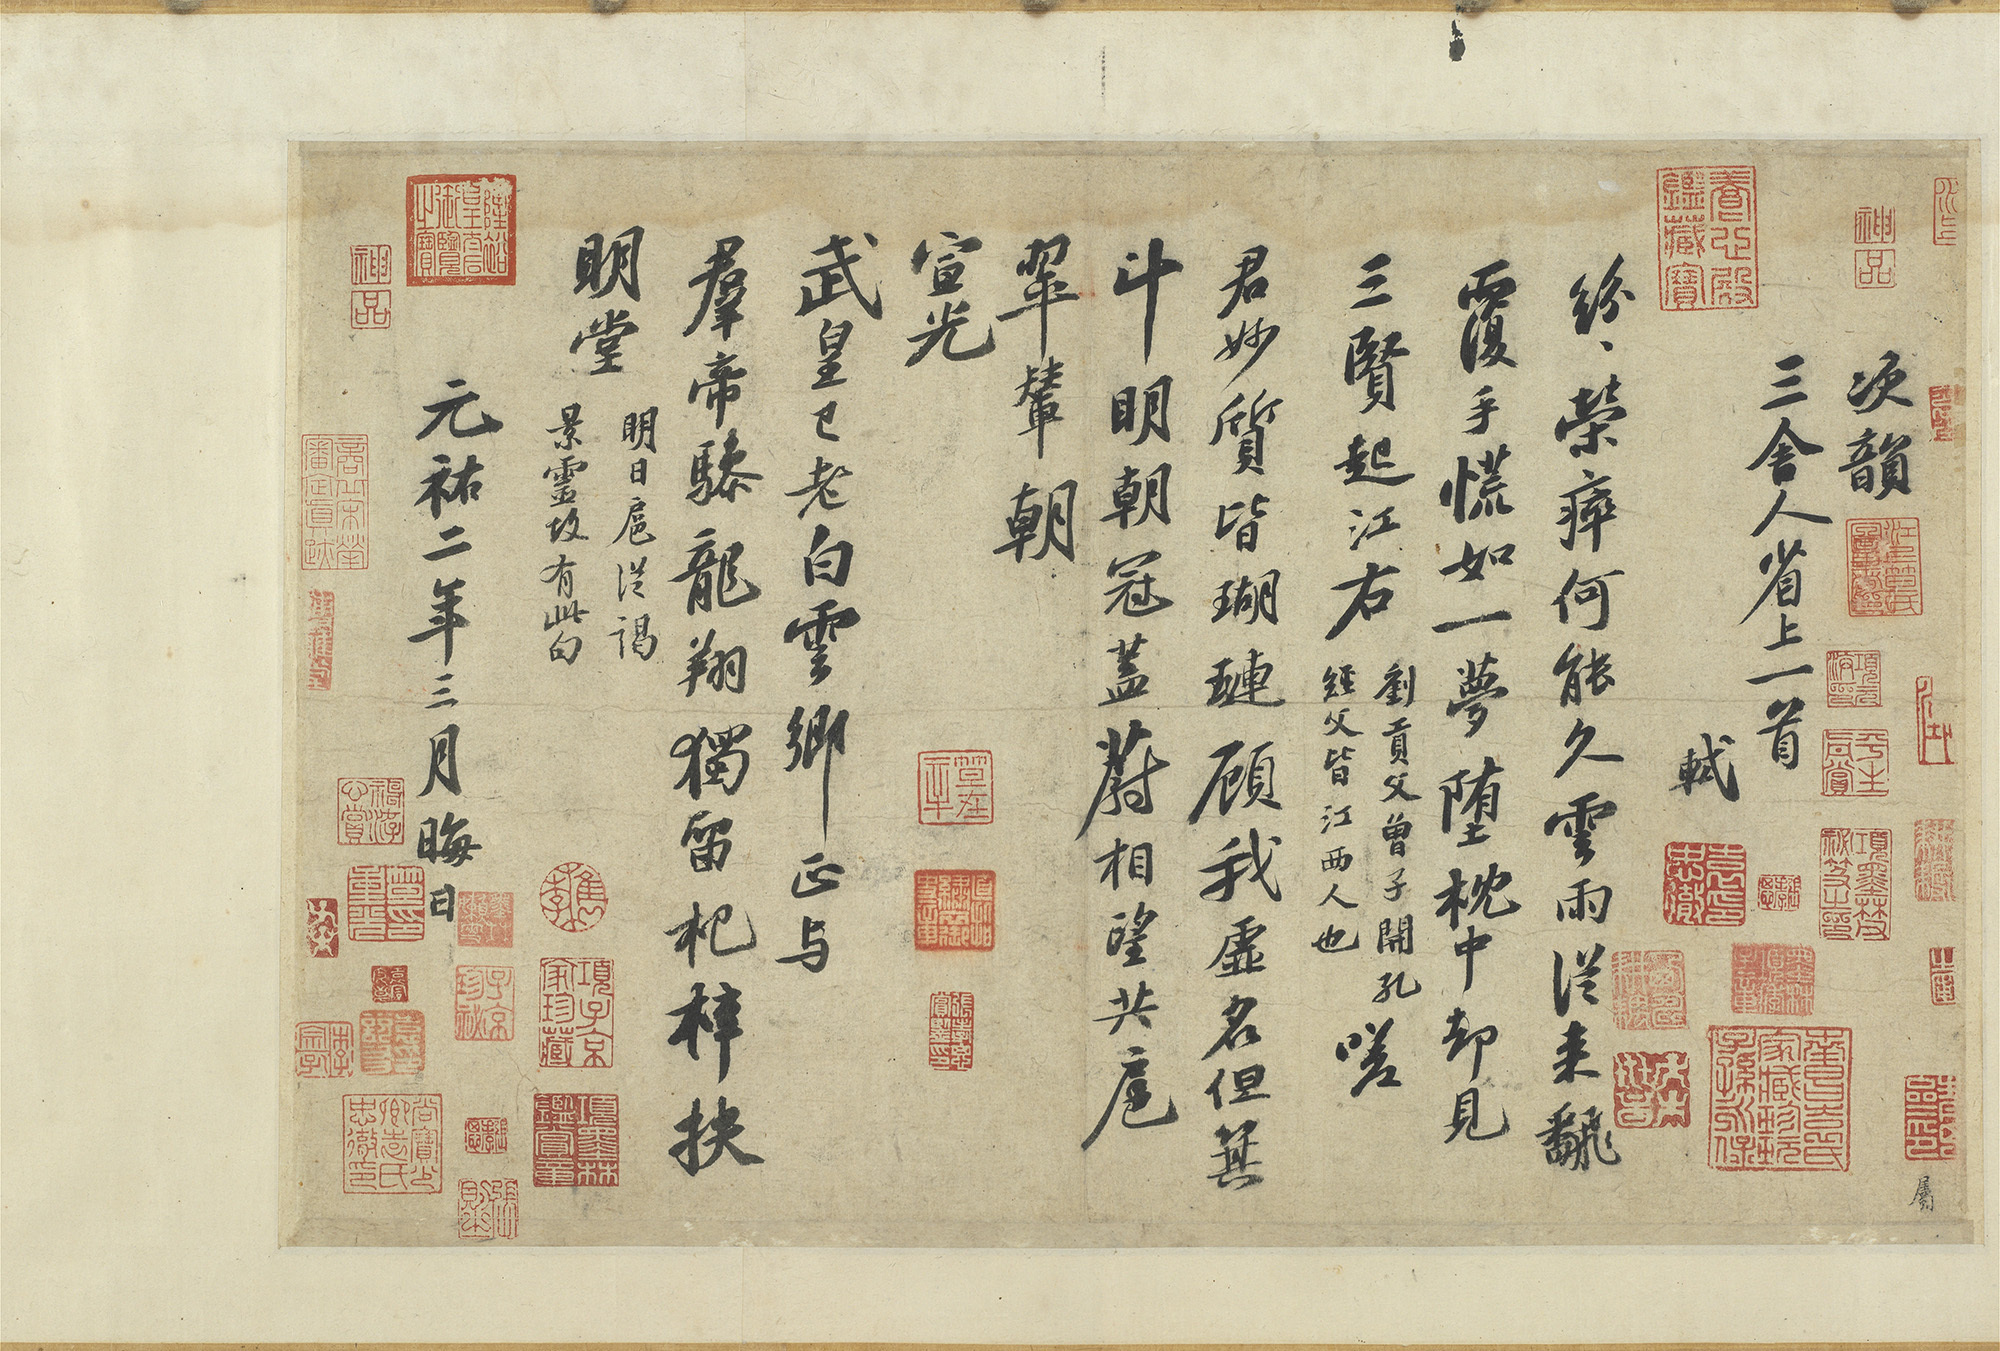 次韻
三舍人省上一首
軾
紛、榮瘁何能久雲雨從来飜
覆手慌如一夢堕枕中却見
三賢起江右
劉貢父曾子開孔
經父皆江西人也
嗟
君妙質皆瑚璉顧我虛名但箕
斗明朝冠蓋蔚相望共扈
翠輦朝
宣光
武皇已老白雲鄉正与
羣帝驂龍翔獨留杞梓扶
明堂
明日扈從謁
景靈故有此句
元祐二年三月晦日
神品
神品
項子京家珍藏
項墨林鑑賞章